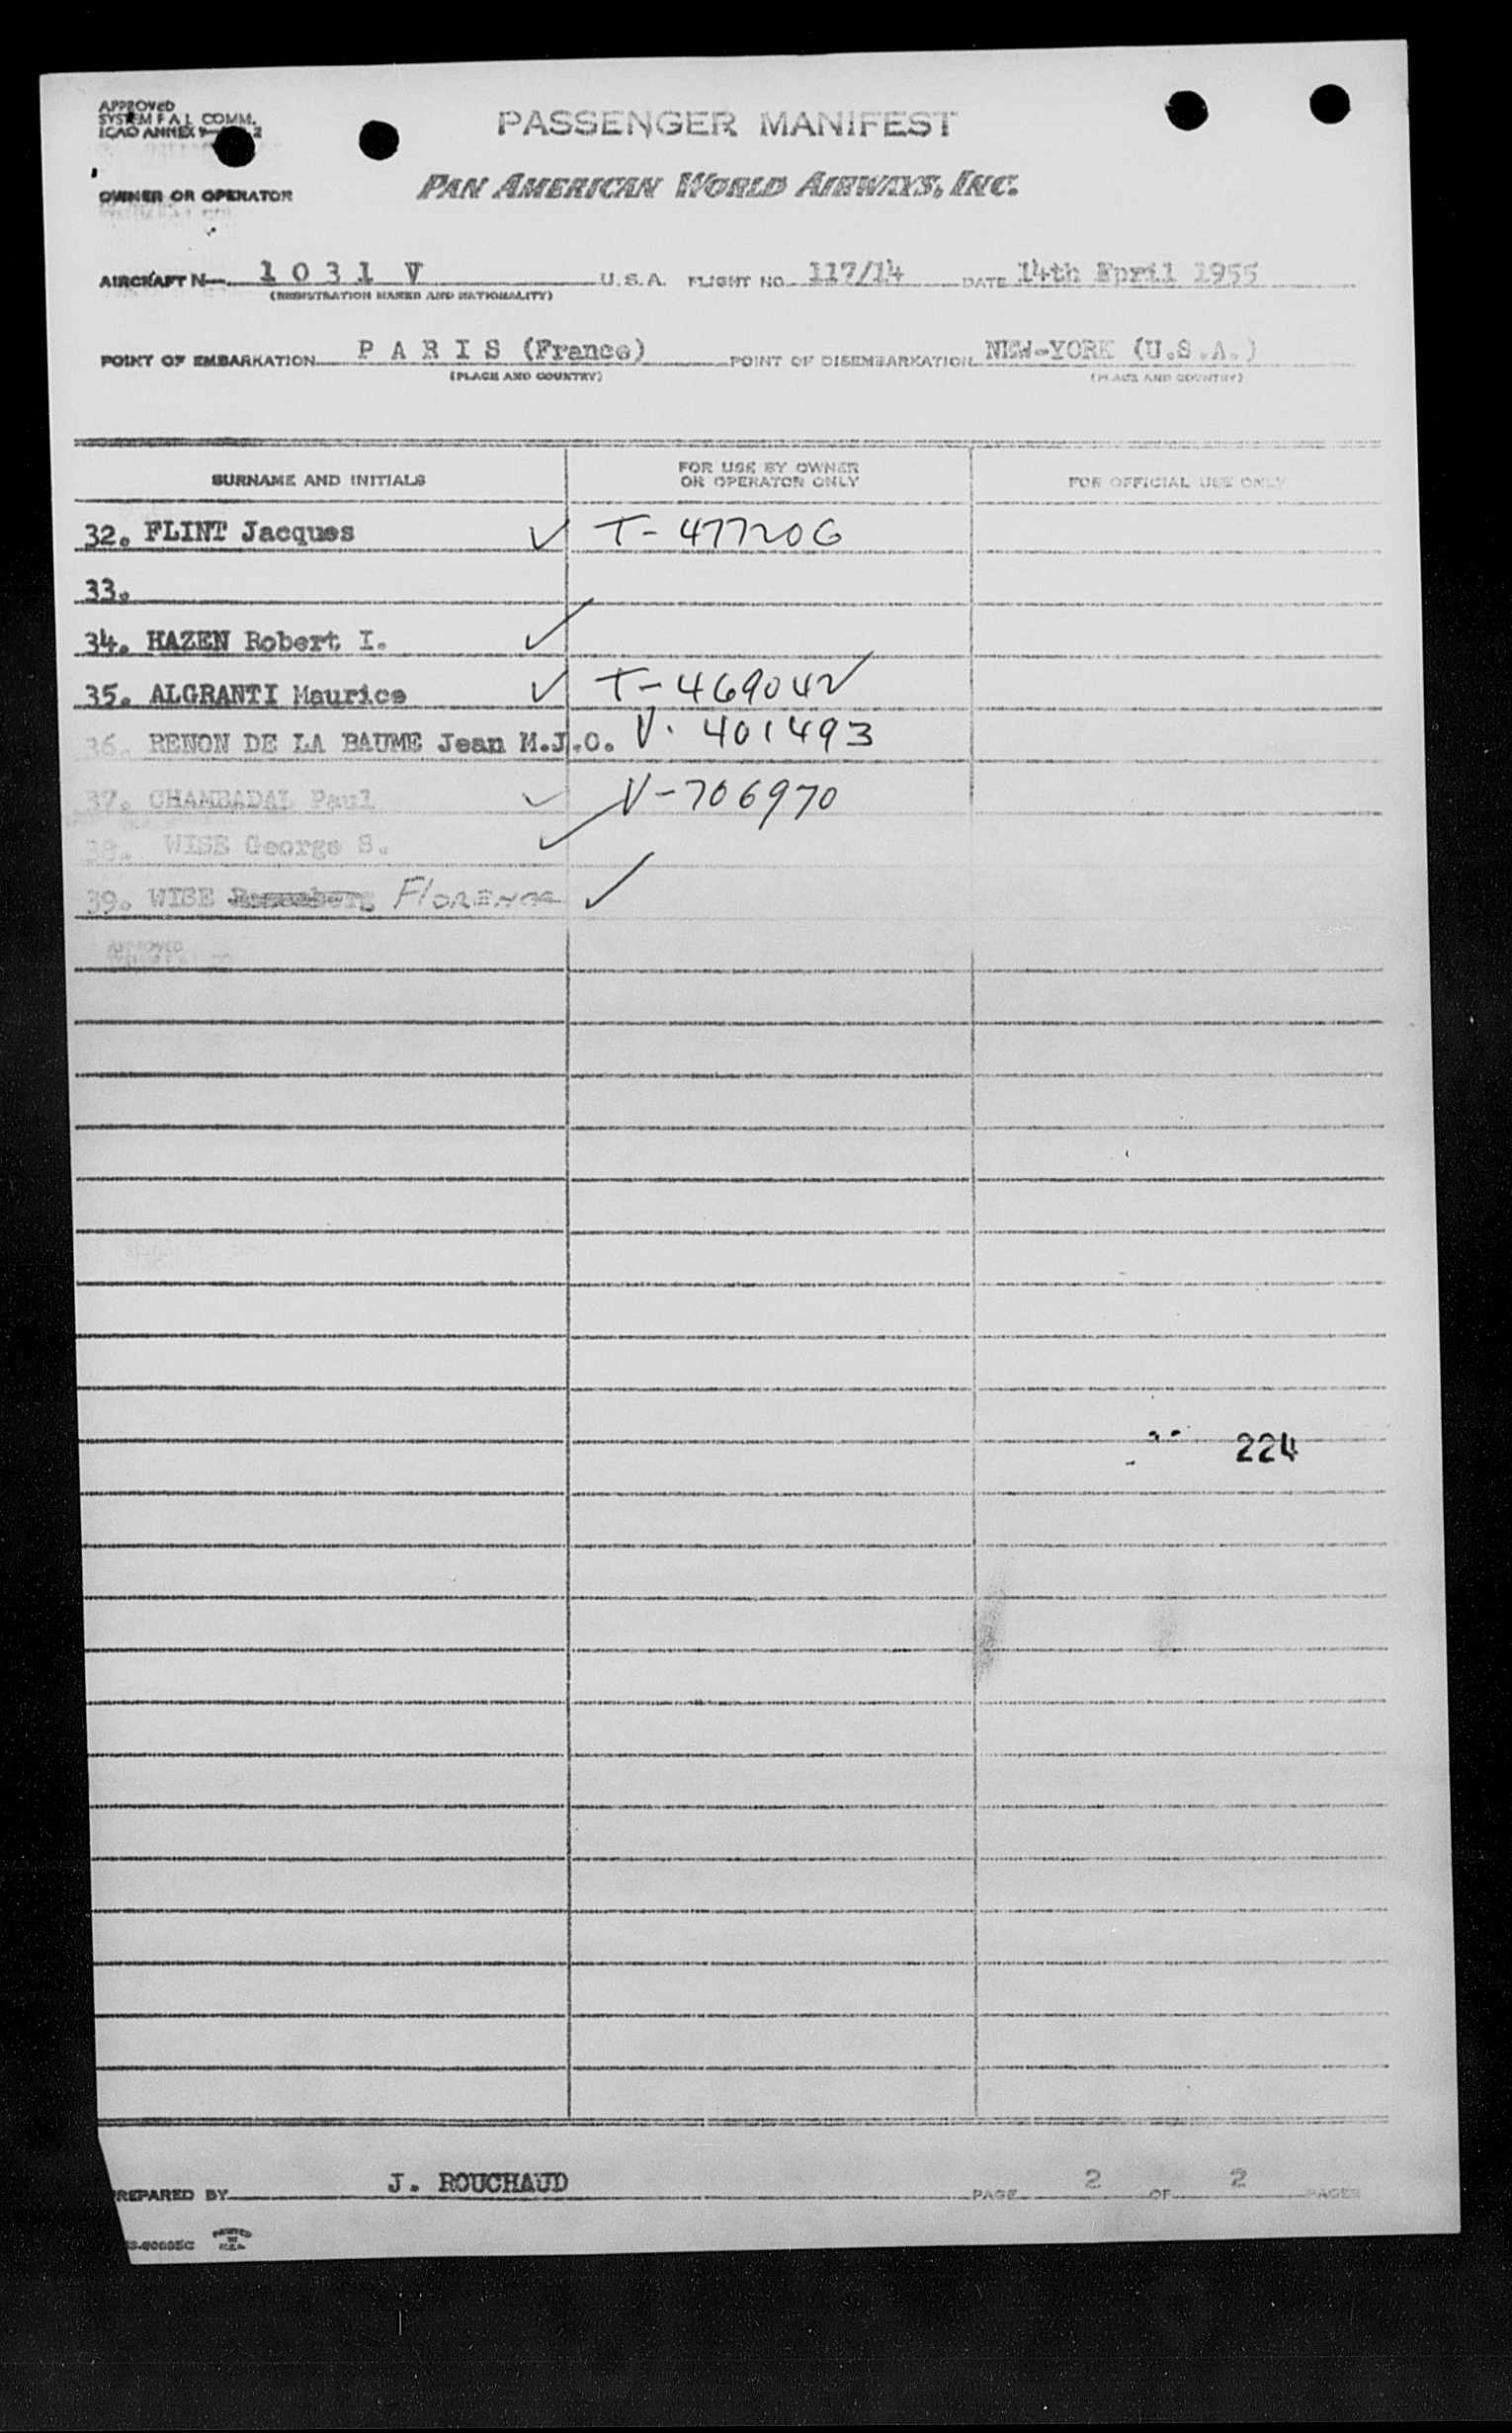 APPROVED
SYSTEM F A L COMM.
ICAO ANNEX 9 2
PASSENGER MANIFEST
OWNER OR OPERATOR
PAN AMERICAN WORLD AIRWAYS, INC.
AIRCRAFT N 1 0 3 1 V U.S.A. FLIGHT NO. 117/14 DATE 14th Epril 1955
(REGISTRATION MARKS AND NATIONALITY)
POINT OF EMBARKATION P A R I S (France) POINT OF DISEMBARKATION NEW-YORK (U.S.A.)
(PLACE AND COUNTRY) (PLACE AND COUNTRY)
SURNAME AND INITIALS FOR USE BY OWNER OR OPERATOR ONLY FOR OFFICIAL USE ONLY
32. FLINT Jacques ✓ T-477206
33.
34. HAZEN Robert I. ✓
35. ALGRANTI Maurice ✓ T-469042 ✓
36. RENON DE LA BAUME Jean M.J.O. V. 401493
37. CHAMBADAL Paul ✓ V-706970
38. WISE George S. ✓
39. WISE FLORENCE ✓
APPROVED
224
PREPARED BY J. ROUCHAUD PAGE 2 OF 2 PAGES
PRINTED
IN
U.S.A.